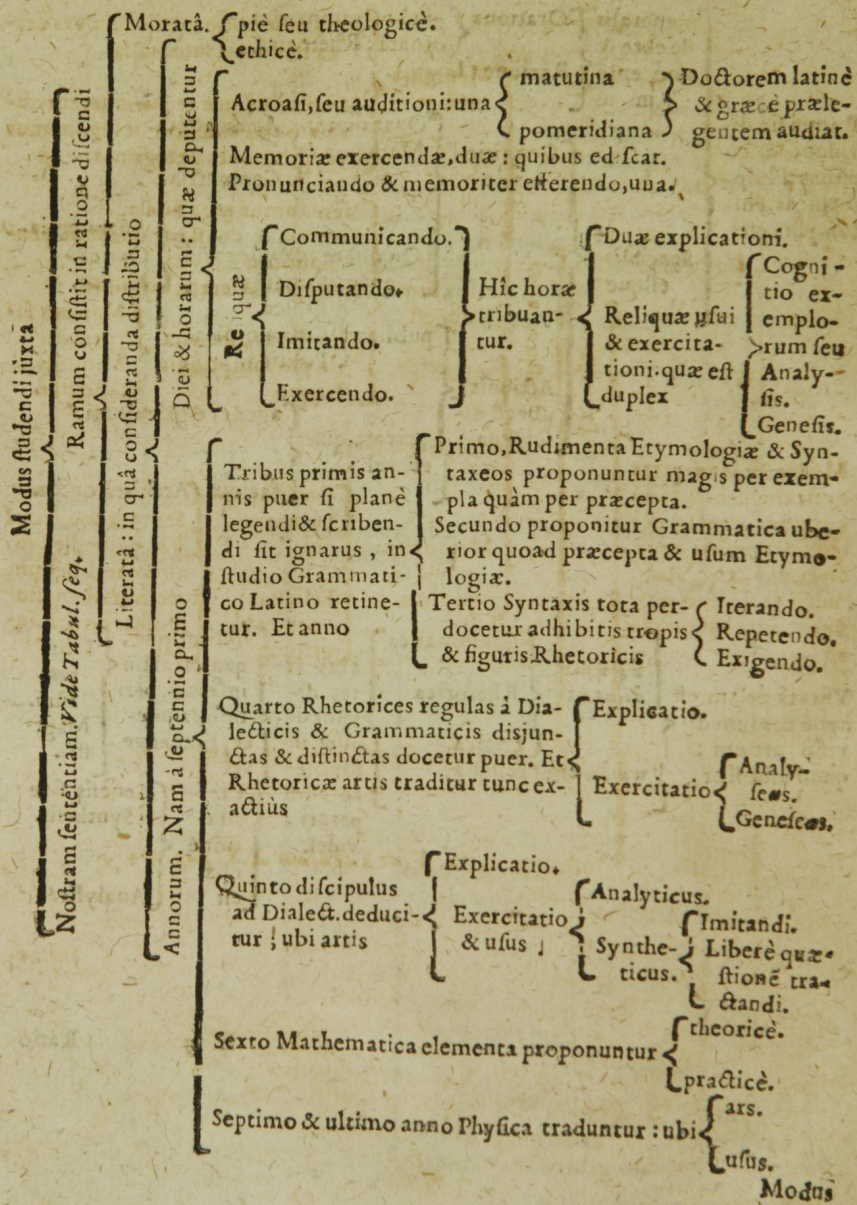 Modus studendi juxtà
Ramum consistit in ratione discendi
Nostram sententiam. Vide Tabul. seq.
Moratâ.
piè seu theologicè.
ethicè.
Literatâ : in quâ consideranda distributio
Diei & horarum : quæ deputentur
Acroasi, seu auditioni: una
matutina
pomeridiana
Doctorem latinè
& græcè præle-
gentem audiat.
Memoriæ exercendæ, duæ : quibus ediscat.
Pronunciando & memoriter efferendo, una.
Re quæ
Communicando.
Disputando.
Imitando.
Exercendo.
Hîc horæ
tribuan-
tur.
Duæ explicationi.
Reliquæ usui
& exercita-
tioni. quæ est
duplex
Cogni-
tio ex-
emplo-
rum seu
Analy-
sis.
Genesis.
Annorum. Nam à septennio primo
Tribus primis an-
nis puer si planè
legendi & scriben-
di sit ignarus, in
studio Grammati-
co Latino retine-
tur. Et anno
Primo, Rudimenta Etymologiæ & Syn-
taxeos proponuntur magis per exem-
pla quàm per præcepta.
Secundo proponitur Grammatica ube-
rior quoad præcepta & usum Etymo-
logiæ.
Tertio Syntaxis tota per-
docetur adhibitis tropis
& figuris Rhetoricis
Iterando.
Repetendo.
Exigendo.
Quarto Rhetorices regulas à Dia-
lecticis & Grammaticis disjun-
ctas & distinctas docetur puer. Et
Rhetoricæ artis traditur tunc ex-
actiùs
Explicatio.
Exercitatio
Analy-
seωs.
Geneseωs.
Quinto discipulus
ad Dialect. deduci-
tur ; ubi artis
Explicatio.
Exercitatio
& usus
Analyticus.
Synthe-
ticus.
Imitandi.
Liberè quæ-
stionē tra-
ctandi.
Sexto Mathematica elementa proponuntur
theoricè.
practicè.
Septimo & ultimo anno Physica traduntur : ubi
ars.
usus.
Modus